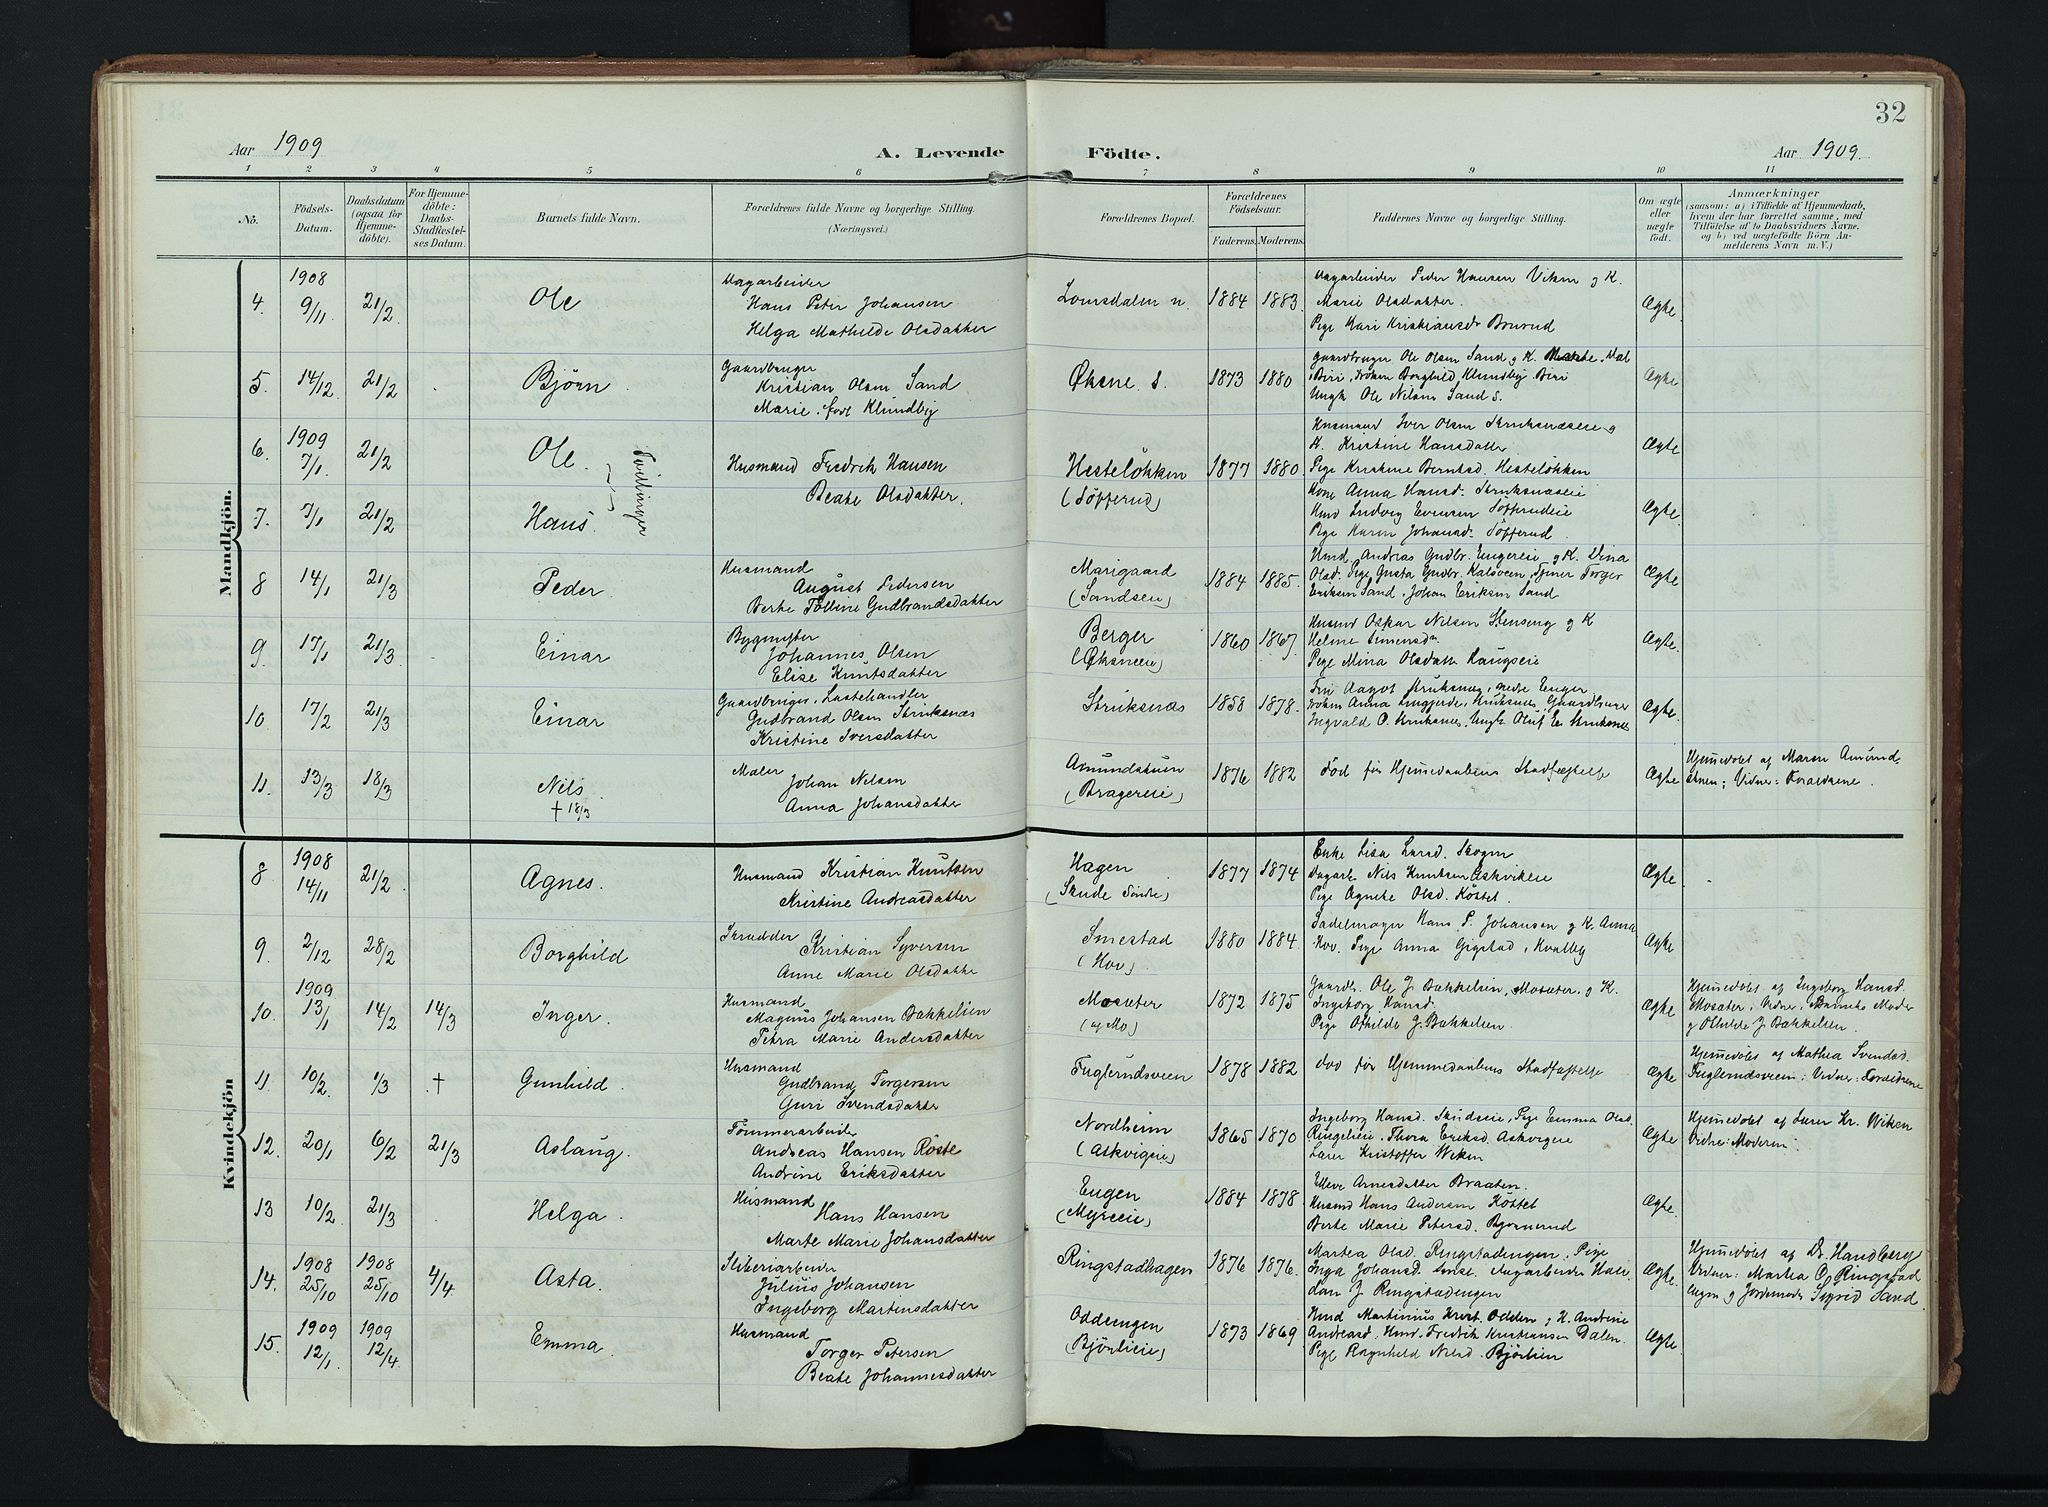 32
Aar 1909
A. Levende
Födte.
Aar 1909.
1 2 3 4 5 6 7 8 9 10 11
Nö.
Födsels-
Datum.
Daabsdatum
(ogsaa for
Hjemme-
döbte).
For Hjemme-
döbte:
Daabs-
Stadfæstel-
ses Datum.
Barnets fulde Navn.
Forældrenes fulde Navne og borgerlige Stilling.
(Næringsvei.)
Forældrenes Bopæl.
Forældrenes
Födselsaar.
Faderens. Moderens.
Faddernes Navne og borgerlige Stilling.
Om ægte
eller
uægte
født.
Anmærkninger
(saasom: a) i Tilfælde af Hjemmedaab,
hvem der har forrettet samme, med
Tilföielse af to Daabsvidners Navne.
og b) ved uægtefödte Börn An-
melderens Navn m. V.)
Mandkjön.
4. 1908 9/11 21/2 Ole
Dagarbeider
Hans Peter Johansen
Helga Mathilde Olsdatter
Lomsdalen n. 1884 1883.
Dagarbeider Peder Hansen Viken og K.
Marie Olsdatter.
Pige Mari Kristiansdr Bruvud
Ægte.
5. 14/12 21/2 Bjørn
Gaardbruger
Kristian Olsen Sand
Marie, født Klundby
Øksne s. 1873 1880
Gaardbruger Ole Olsen Sand og K.
Biri, Frøken Borghild Klundby Biri
Ungk. Ole Nilsen Sand s.
Ægte
6. 1909 7/1 21/2 Ole
Tvillinger
Husmand Fredrik Hansen
Beate Olsdatter.
Hesteløkken
(Tøfferud)
1877 1880
Husmand Iver Olsen Struksnæseie og
K. Kristine Hansdatter
Pige Kristine Berntsd. Hesteløkken
Ægte
7. 7/1 21/2 Hans.
Kone Anna Hansd. Struksnæseie
Hmd Ludvig Evensen Tøfferudeie
Pige Karen Johansd. Tøfferud.
Ægte.
8 14/1 21/3 Peder.
Husmand
August Pedersen
Berte Tolline Gudbrandsdatter
Marigaard
(Sandseie)
1884 1885.
Hmd Andreas Gudbr. Engereie og K. Dina
Olsd. Pige Gusta Gudbr. Kalsveen, Torger
Eriksen Sand, Johan Eriksen Sand
Ægte
9. 17/1 21/3 Einar
Bygmester
Johannes Olsen
Elise Knutsdatter
Berger
(Øksneeie)
1860 1867
Husmd Oskar Nilsen Stenseng og K
Helene Simensdr
Pige Mina Olsdatter Haugseie
Ægte.
10. 17/2 21/3 Einar
Gaardbruger, Lastehandler
Gudbrand Olsen Struksnæs
Kristine Iversdatter
Struksnæs 1858 1878.
Fru Aagot Struksnæs, nedre Enger
Frøken Anna Lingjerde, Struksnæs, Gaardbruger
Ingvald O. Struksnæs, Ungk. Oluf E. Struksnæs
Ægte.
11. 13/3 18/3 Nils
† 18/3
Maler
Johan Nilsen
Anna Johansdatter
Amundstuen
(Bragereie)
1876 1882
Død før Hjemmedaabens Stadfæstelse
Ægte
Hjemmedøbt af Maren Amund-
stuen; Vidner: Forældrene.
Kvindekjön
8. 1908 14/11 21/2 Agnes.
Husmand Kristian Knutsen
Kristine Andreasdatter
Hagen
(Skude søndre)
1877 1874
Enke Lisa Larsd. Skogen
Dagarb. Nils Knutsen Askvikeie
Pige Agnete Olsd. Køstet.
Ægte
9. 2/12 28/2 Borghild
Skrædder
Kristian Syversen
Anne Marie Olsdatter
Smestad
(Hov)
1880 1884.
Sadelmager Hans P. Johansen og K. Anna
Hov. Pige Anna Gigstad, Kvalby
Ægte
10. 1909 13/1 14/2 14/3 Inger.
Husmand
Magnus Johansen Bakkelien
Petra Marie Andersdatter
Mosæter
(og Mo)
1872 1875
Gaardb. Ole J. Bakkelien, Mosæter, og K.
Ingeborg Hansd.
Pige Othilde J. Bakkelien.
Ægte
Hjemmedøbt af Ingeborg Hansd.
Mosæter, Vidner, Barnets Moder
og Othilde J. Bakkelien.
11. 10/2 1/3 † Gunhild.
Husmand
Gudbrand Torgersen
Guri Svendsdatter
Fuglerudsveen 1878 1882
Død før Hjemmedaabens Stadfæstelse
Ægte
Hjemmedøbt af Mathea Svendsd.
Fuglerudsveen; Vidner: Forældrene
12. 20/1 6/2 21/3 Aslaug.
Tømmerarbeider
Andreas Hansen Røste
Andrine Eriksdatter
Nordheim
(Askvigeie)
1865 1870
Ingeborg Hansd. Skudseie, Pige Emma Olsd.
Ringelieie, Thora Eriksd. Askvigeie
Lærer Kristoffer Wiken
Ægte
Hjemmedøbt af Lærer Kr. Wiken
Vidne: Moderen.
13 10/2 21/3 Helga.
Husmand
Hans Hansen
Marte Marie Johansdatter
Engen
(Myreeie)
1884 1878
Arnesdatter Braaten.
Husmd Hans Andersen Køstet
Berte Marie Petersd. Bjørnerud
Ægte.
14. 1908 25/10 1908 25/10 4/4 Asta.
Sliberiarbeider
Julius Johansen
Ingeborg Martinsdatter
Ringstadhagen 1876 1876.
Martea Olsd. Ringstadengen, Pige
Inga Johansd. Dagarbeider Hal-
dan J. Ringstadengen
Ægte.
Hjemmedøbt af Dr. Handberg
Vidner: Martea O. Ringstad
engen og Jordemoder Sigrid Sand.
15. 1909 12/1 1909 12/4 Emma.
Husmand
Torger Petersen
Beate Johannesdatter
Oddengen
(Bjørlieie)
1873 1869
Hmd Martinius Krist. Odden og K. Andrine
Andreasd. Hmd. Fredrik Kristiansen Dalen.
Pige Ragnhild Nilsd. Bjørlien
Ægte.